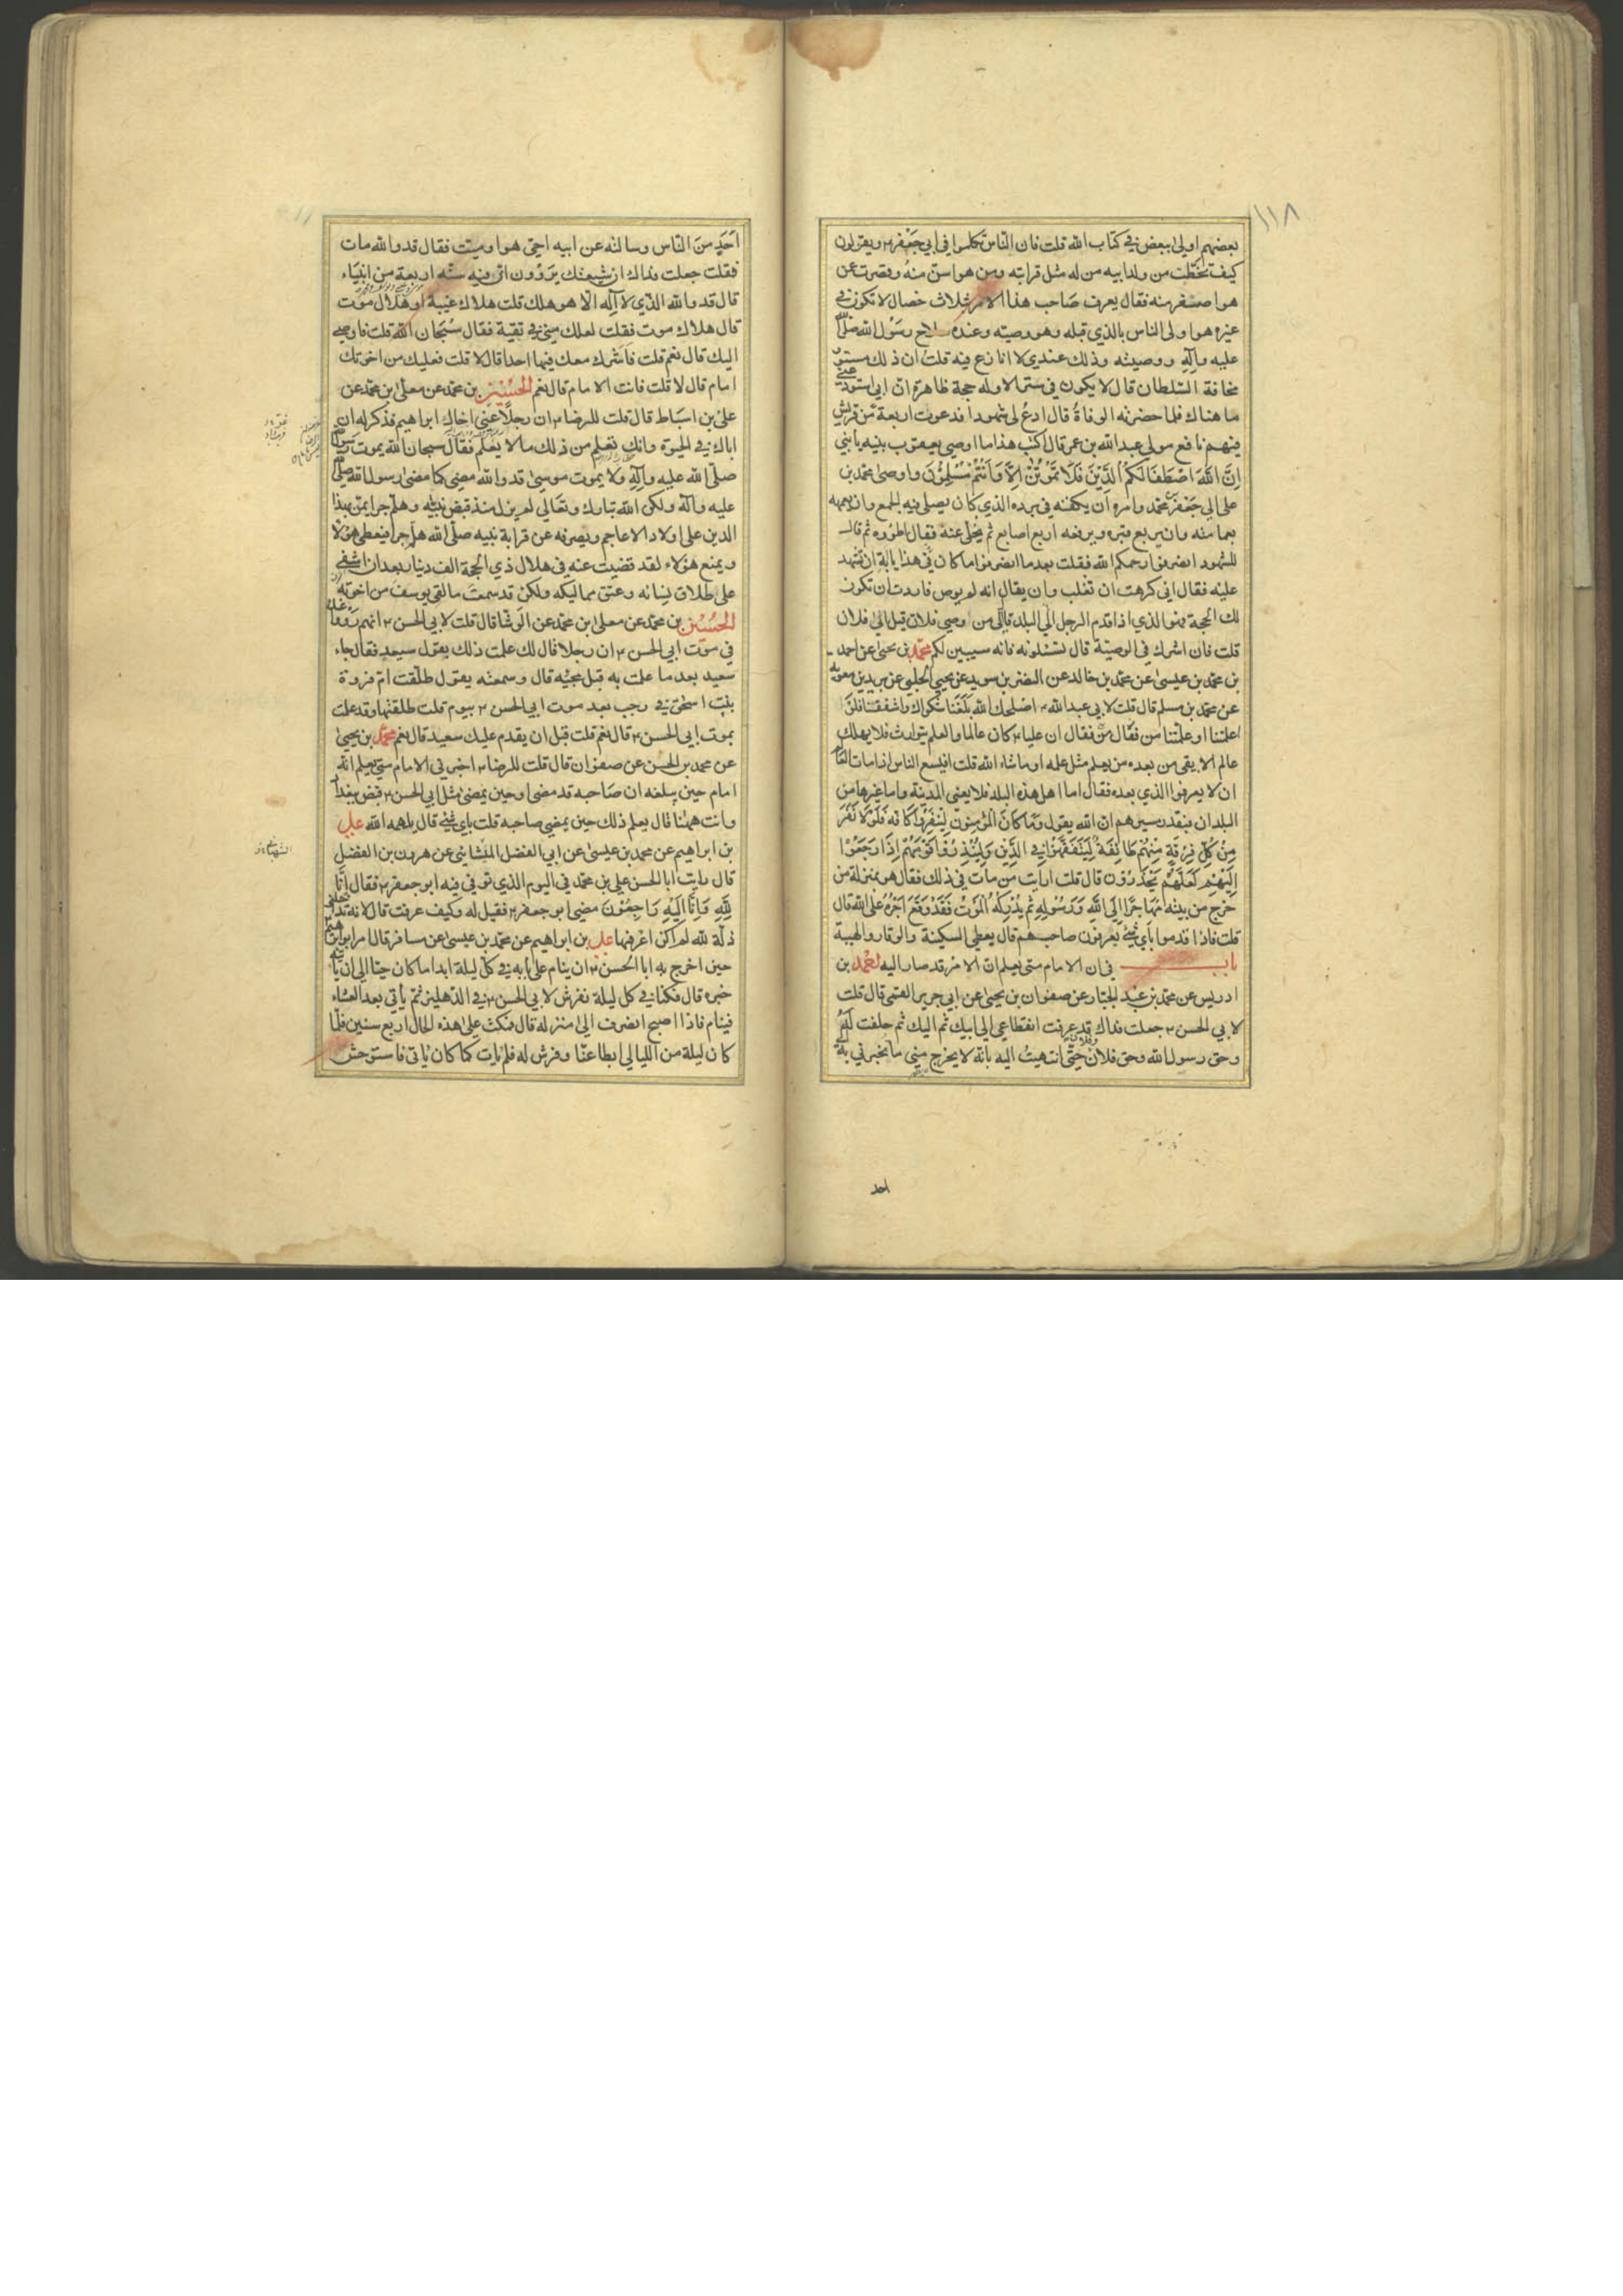 ١١٨
بعضهم اولى ببعض في كتاب الله قلت فان الناس تكلموا في ابي جعفر ٢ ويقولون
كيف تخطت من ولد ابيه من له مثل قرابته ومن هو اسن منه وقصرت عن
هو اصغر منه فقال يعرف صاحب هذا الامر بثلاث خصال لا تكون في
غيره هو اولى الناس بالذي قبله وهو وصيه وعنده سلاح رسول الله صلى
عليه وآله ووصيته وذلك عندي لا انازع فيه قلت ان ذلك مستور
مخافة السلطان قال لا يكون في ستر الا وله حجة ظاهرة ان ابي استودعني
ما هناك فلما حضرته الوفاة قال ادع لي شهودا فدعوت اربعة من قريش
فيهم نافع مولى عبد الله بن عمر قال اكتب هذا ما اوصى يعقوب بنيه يا بني
اِنَّ اللهَ اصْطَفَى لَكُمُ الدِّيْنَ فَلَا تَمُوْتُنَّ اِلَّا وَاَنْتُمْ مُسْلِمُوْنَ واوصى محمد بن
على الى جعفر بن محمد وامره ان يكفنه في برده الذي كان يصلى فيه الجمع وان يعممه
بعمامته وان يربع قبره ويرفعه اربع اصابع ثم يخلى عنه فقال اطووه ثم قال
للشهود انصرفوا رحمكم الله فقلت بعد ما انصرفوا ما كان في هذا يا ابة ان تشهد
عليه فقال اني كرهت ان تغلب وان يقال انه لم يوص فاردت ان تكون
لك الحجة فهو الذي اذا قدم الرجل الى البلد قال من اوصى فلان قيل الى فلان
قلت فان اشرك في الوصية قال تسئلونه فانه سيبين لكم محمد بن يحيى عن احمد
بن محمد بن عيسى عن محمد بن خالد عن النضر بن سويد عن يحيى الحلبي عن بريد بن معوية
عن محمد بن مسلم قال قلت لابي عبد الله ٢ اصلحك الله بلغنا شكواك واشفقنا فلو
اعلمتنا او علمتنا من فقال فقال ان عليا ٢ كان عالما والعلم يتوارث فلا يهلك
عالم الا بقى من بعده من يعلم مثل علمه او ما شاء الله قلت افيسع الناس اذا مات العالم
ان لا يعرفوا الذي بعده فقال اما اهل هذه البلدة فلا يعني المدينة واما غيرها من
البلدان فبقدر مسيرهم ان الله يقول وَمَا كَانَ الْمُؤْمِنُوْنَ لِيَنْفِرُوْا كَافَّةً فَلَوْلَا نَفَرَ
مِنْ كُلِّ فِرْقَةٍ مِنْهُمْ طَائِفَةٌ لِيَتَفَقَّهُوْا فِي الدِّيْنِ وَلِيُنْذِرُوْا قَوْمَهُمْ اِذَا رَجَعُوْا
اِلَيْهِمْ لَعَلَّهُمْ يَحْذَرُوْنَ قال قلت ارايت من مات في ذلك فقال هو بمنزلة من
خرج من بيته مُهَاجِرًا اِلَى اللهِ وَرَسُوْلِهِ ثم يُدْرِكْهُ الْمَوْتُ فَقَدْ وَقَعَ اَجْرُهُ عَلَى اللهِ قال
قلت فاذا قدموا باى شئ يعرفون صاحبهم قال يعطى السكينة والوقار والهيبة
باب في ان الامام متى يعلم ان الامر قد صار اليه احمد بن
ادريس عن محمد بن عبد الجبار عن صفوان بن يحيى عن ابي جرير القمي قال قلت
لابي الحسن ٢ جعلت فداك قد عرفت انقطاعي الى ابيك ثم اليك ثم حلفت له
وحق رسول الله وحق فلان وفلان حتى انتهيت اليه بانه لا يخرج مني ما تخبرني به
احد
اَحَدٍ من الناس وسالته عن ابيه احي هو او ميت فقال قد والله مات
فقلت جعلت فداك ان شيعتك يروون ان فيه سنة اربعة من انبياء
قال قد والله الذي لا اله الا هو هلك قلت هلاك غيبة او هلاك موت
قال هلاك موت فقلت لعلك مني في تقية فقال سبحان الله قلت فاوصى
اليك قال نعم قلت فاشرك معك فيها احدا قال لا قلت فعليك من اخوتك
امام قال لا قلت فانت الامام قال نعم الحسين بن محمد عن معلى بن محمد عن
على بن اسباط قال قلت للرضا ٢ ان رجلا عنى اخاك ابراهيم فذكر له ان
اباك في الحيوة وانك تعلم من ذلك ما لا يعلم فقال سبحان الله يموت رسول الله
صلى الله عليه وآله ولا يموت موسى قد والله مضى كما مضى رسول الله صلى
عليه وآله ولكن الله تبارك وتعالى لم يزل منذ قبض نبيه وهلم جرا يمن بهذا
الدين على اولاد الاعاجم ويصرفه عن قرابة نبيه صلى الله هلم جرا فيعطى هؤلاء
ويمنع هؤلاء لقد قضيت عنه في هلال ذي الحجة الف دينار بعد ان اشفى
على طلاق نسائه وعتق مماليكه ولكن قد سمعت ما لقى يوسف من اخوته
الحسين بن محمد عن معلى بن محمد عن الوشا قال قلت لابي الحسن ٢ انهم رووا عنك
في موت ابي الحسن ٢ ان رجلا قال لك علمت ذلك بقول سعيد فقال جاء
سعيد بعد ما علمت به قبل مجيئه قال وسمعته يقول طلقت ام فروة
بنت اسحق في رجب بعد موت ابي الحسن ٢ بيوم قلت طلقتها وقد علمت
بموت ابي الحسن ٢ قال نعم قلت قبل ان يقدم عليك سعيد قال نعم محمد بن يحيى
عن محمد بن الحسن عن صفوان قال قلت للرضا ٢ اخبرني الامام متى يعلم انه
امام حين يبلغه ان صاحبه قد مضى او حين يمضى مثل ابي الحسن ٢ قبض ببغداد
وانت ههنا قال يعلم ذلك حين يمضى صاحبه قلت باى شئ قال يلهمه الله على
بن ابراهيم عن محمد بن عيسى عن ابي الفضل الميشائي عن هرون بن الفضل
قال رايت ابا الحسن على بن محمد في اليوم الذي توفي فيه ابو جعفر ٢ فقال اِنَّا
لِلّٰهِ وَاِنَّا اِلَيْهِ رَاجِعُوْنَ مضى ابو جعفر ٢ فقيل له وكيف عرفت قال لانه تداخلني
ذلة لله لم اكن اعرفها على بن ابراهيم عن محمد بن عيسى عن مسافر قال امر ابو ابراهيم
حين اخرج به ابا الحسن ٢ ان ينام على بابه في كل ليلة ابدا ما كان حيا الى ان ياتيه
خبره قال فكنا في كل ليلة نفرش لابي الحسن ٢ في الدهليز ثم يأتي بعد العشاء
فينام فاذا اصبح انصرف الى منزله قال فمكث على هذه الحال اربع سنين فلما
كان ليلة من الليالي ابطا عنا وفرش له فلم يات كما كان ياتي فاستوحش